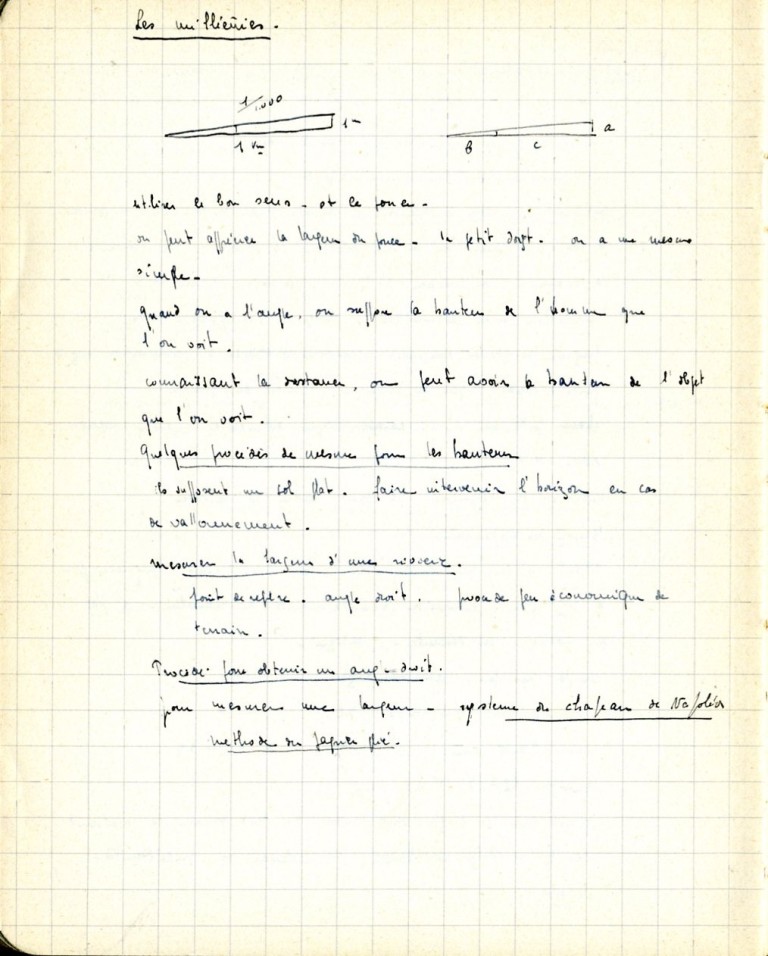 Les millièmes.
1/1.000
1 m
1 Km
a
B
c
utiliser le bon sens. et le pouce.
on peut apprécier la largeur du pouce. le petit doigt. on a une mesure
simple.
quand on a l'angle, on suppose la hauteur de l'homme que
l'on voit.
connaissant la distance, on peut avoir la hauteur de l'objet
que l'on voit.
Quelques procédés de mesure pour les hauteurs
ils supposent un sol plat. faire intervenir l'horizon en cas
de vallonnement.
mesurer la largeur d'une rivière.
point de repère. angle droit. procédé peu économique de
terrain.
Procédé pour obtenir un angle droit.
pour mesurer une largeur - système du chapeau de Napoléon
méthode du papier plié.